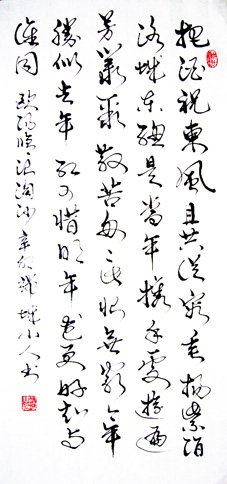 把酒祝東風且共從容垂楊紫陌
洛城東總是當年攜手處遊遍
芳叢聚散苦匆匆此恨無窮今年
勝似去年紅可惜明年花更好知與
誰同 歐陽修浪淘沙 辛卯 城小人書